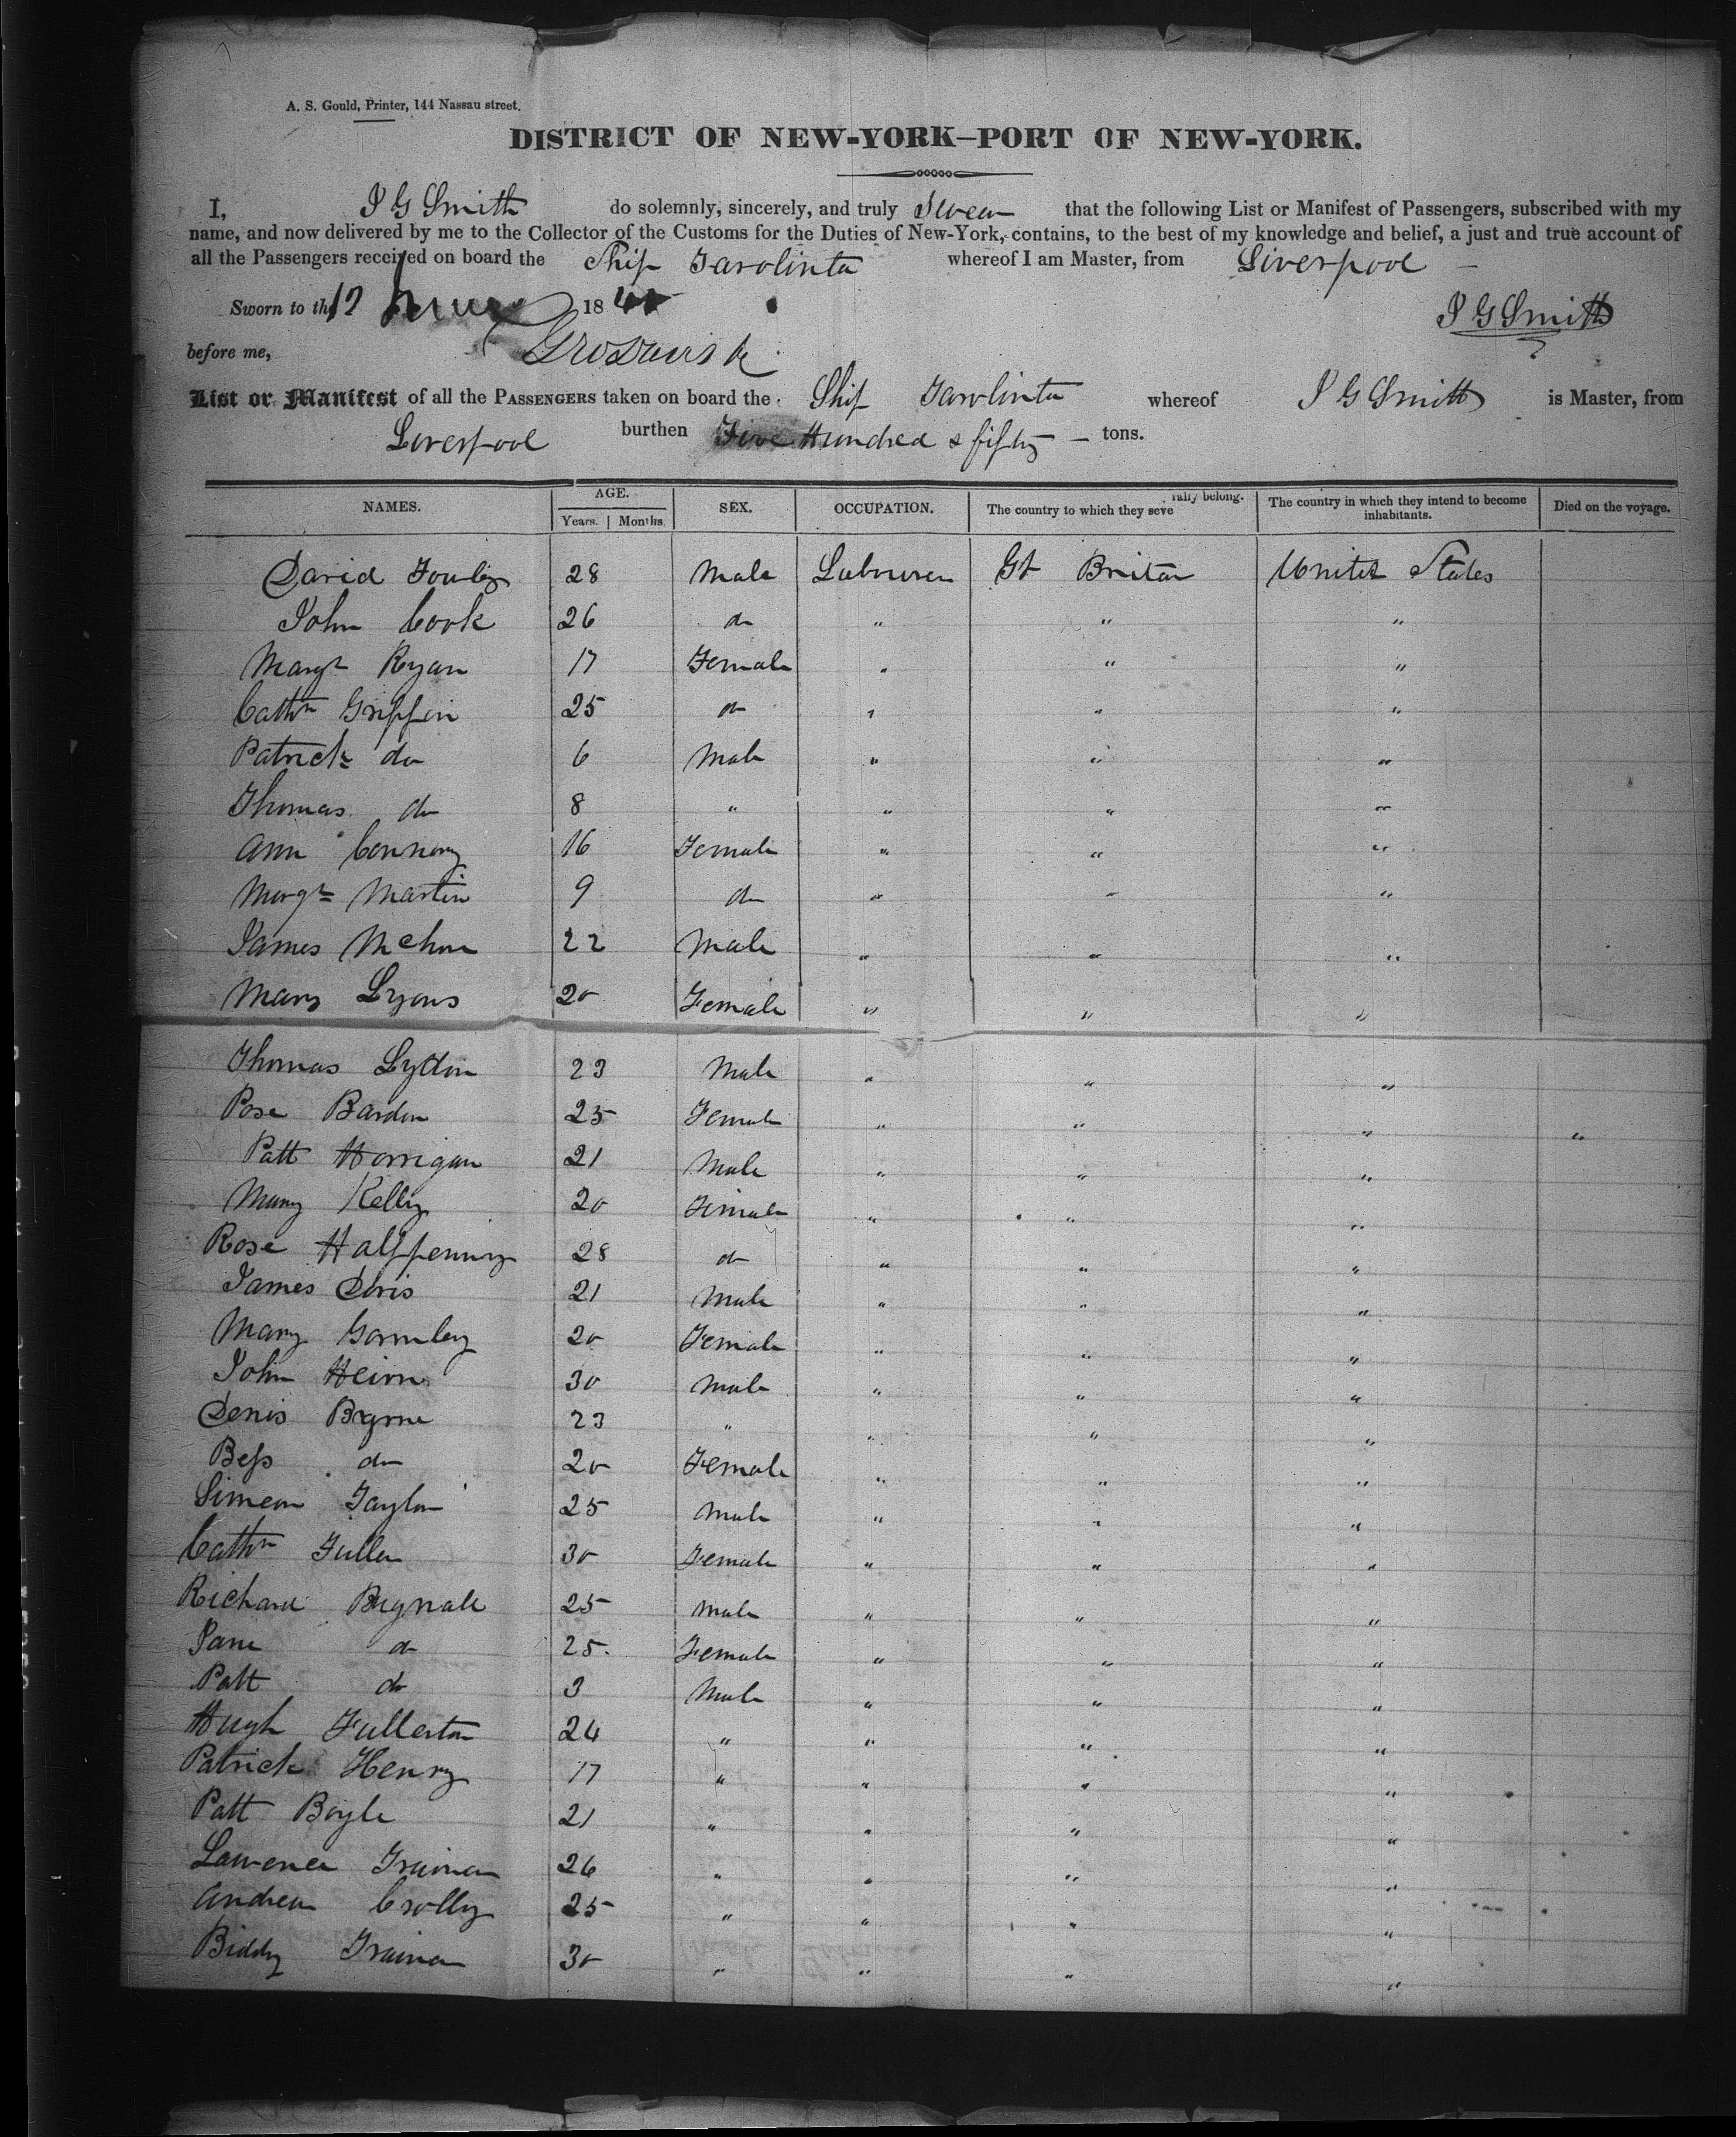 A. S. Gould, Printer, 144 Nassau street.
DISTRICT OF NEW-YORK—PORT OF NEW-YORK.
I, J G Smith do solemnly, sincerely, and truly Swear that the following List or Manifest of Passengers, subscribed with my
name, and now delivered by me to the Collector of the Customs for the Duties of New-York, contains, to the best of my knowledge and belief, a just and true account of
all the Passengers received on board the Ship Tarolinta whereof I am Master, from Liverpool
Sworn to th 12 18
J G Smith
before me,
List or Manifest of all the PASSENGERS taken on board the Ship Tarolinta whereof J G Smith is Master, from
Liverpool burthen Five Hundred & fifty tons.
NAMES. AGE. Years. Months. SEX. OCCUPATION. The country to which they severally belong. The country in which they intend to become inhabitants. Died on the voyage.
David 28 Male Labourer Gt Britan United States
John Cook 26 do " " "
Margt Ryan 17 Female " " "
Cathn Griffin 25 do " " "
Patrick do 6 Male " " "
Thomas do 8 " " " "
Ann Connory 16 Female " " "
Margt Martin 9 do " " "
James 22 Male " " "
Mary Lyons 20 Female " " "
Thomas Lyddon 23 Male " " "
Rose Bardon 25 Female " " " "
Patt Horrigan 21 Male " " "
Mary Kelly 20 Female " " "
Rose Halfpenny 28 do " " "
James Doris 21 Male " " "
Mary Gormley 20 Female " " "
John Heirn 30 Male " " "
Denis Byrne 23 " " " "
Bess do 20 Female " " "
Simeon Taylor 25 Male " " "
Cathn Fuller 30 Female " " "
Richard Bagnall 25 Male " " "
Jane do 25 Female " " "
Patt do 3 Male " " "
Hugh Fullerton 24 " " " "
Patrick Henry 17 " " " "
Patt Boyle 21 " " " "
Lawrence Trainer 26 " " " "
Andrew Crolly 25 " " " "
Biddy Trainer 30 " " " "